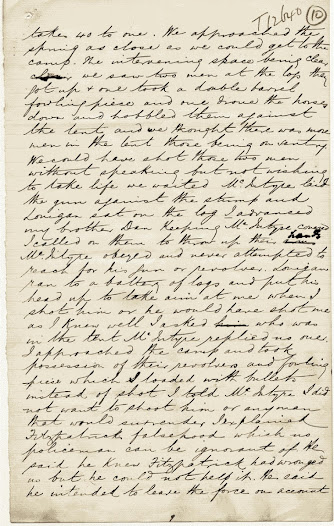 T12640 (10)
taken 40 to one. We approached the
spring as close as we could get to the
camp. The intervening space being clear
we saw two men at the log. they
got up & one took a double barrel
fowling piece and one drove the horses
down and hobbled them against
the tent and we thought there was more
men in the tent those being on sentry
We could have shot those two men
without speaking but not wishing
to take life we waited McIntyre laid
the gun against the stump and
Lonigan sat on the log I advanced
my brother Dan Keeping McIntyre covered
I called on them to throw up their hands
McIntyre obeyed and never attempted to
reach for his gun or revolver. Lonigan
ran to a battery of logs and put his
head up to take aim at me when I
shot him or he would have shot me
as I know well I asked who was
in the tent McIntyre replied no one.
I approached the camp and took
possession of their revolvers and fowling
piece which I loaded with bullets
instead of shot I told McIntyre I did
not want to shoot him or any man
that would surrender. I explained
Fitzpatricks falsehood which no
policeman can be ignorant of He
said he knew Fitzpatrick had wronged
us but he could not help it. He said
he intended to leave the force on account